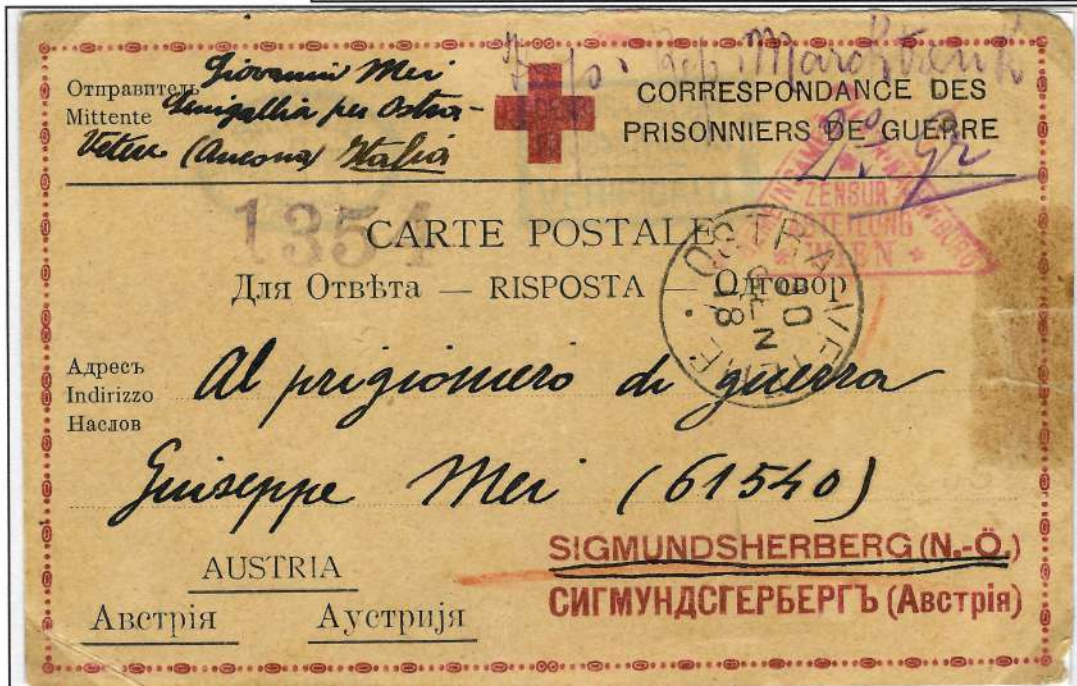 Отправитель
Mittente
Giovanni Mei
Senigallia per Ostra-
Vetere (Ancona) Italia
Marchtrenk
CORRESPONDANCE DES
PRISONNIERS DE GUERRE
1354
ZENSUR
ABTEILUNG
WIEN
CARTE POSTALE
Для Отвѣта — RISPOSTA — Одговор
OSTRA VETERE
18
Адресъ
Indirizzo
Наслов
Al prigioniero di guerra
Guiseppe Mei (61540)
AUSTRIA
Австрія Аустриjя
SIGMUNDSHERBERG (N.-Ö.)
СИГМУНДСГЕРБЕРГЪ (Австрія)